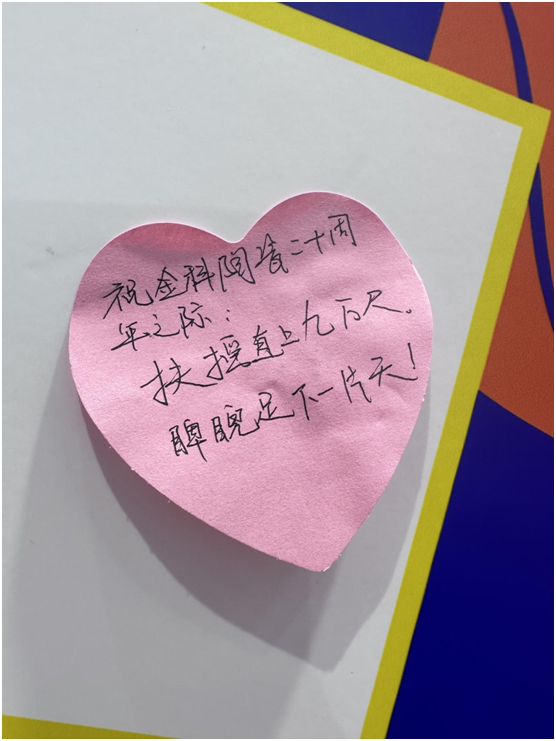 祝金科陶瓷二十周
年之际：
扶摇直上九万尺。
睥睨足下一片天！